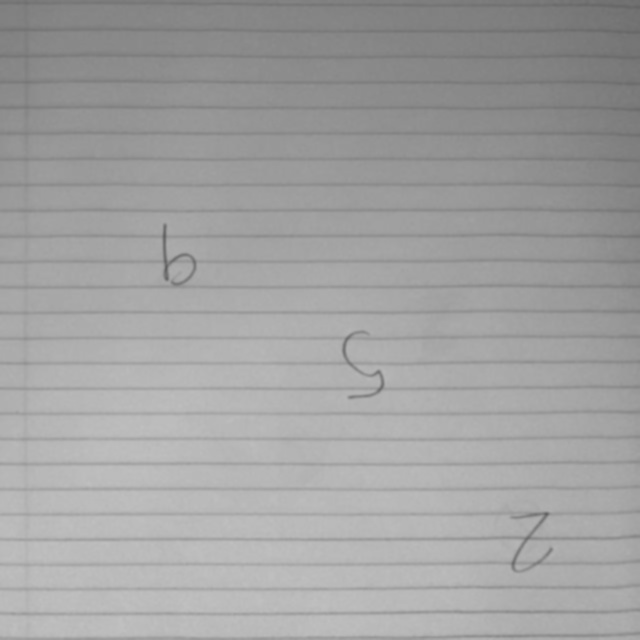 b
S
Z